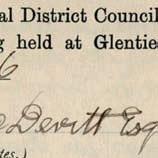 al District Council
g held at Glenties
6
Devitt Esq
tes.)